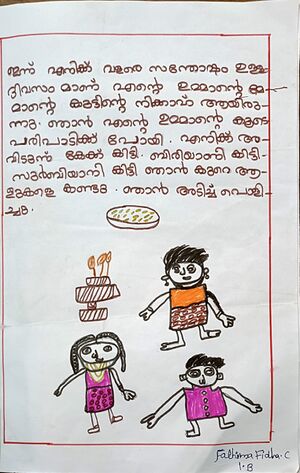 ഇന്ന് എനിക്ക് വളരെ സന്തോഷം ഉള്ള
ദിവസം മാണ് എന്റെ ഉമ്മാന്റെ മ
മാന്റെ കുട്ടിന്റെ നിക്കാഹ് ആയിരു
ന്നു. ഞാൻ എന്റെ ഉമ്മാന്റെ കൂടെ
പരിപാടിക്ക് പോയി. എനിക്ക് അ
വിടുന്ന് കേക്ക് കിട്ടി. ബിരിയാണി കിട്ടി.
സർബിയാണി കിട്ടി ഞാൻ കുറെ ആ
ളുകളെ കണ്ടു. ഞാൻ അടിച്ച് പൊളി
ച്ചു.
Fathima Fidha.C
1.B